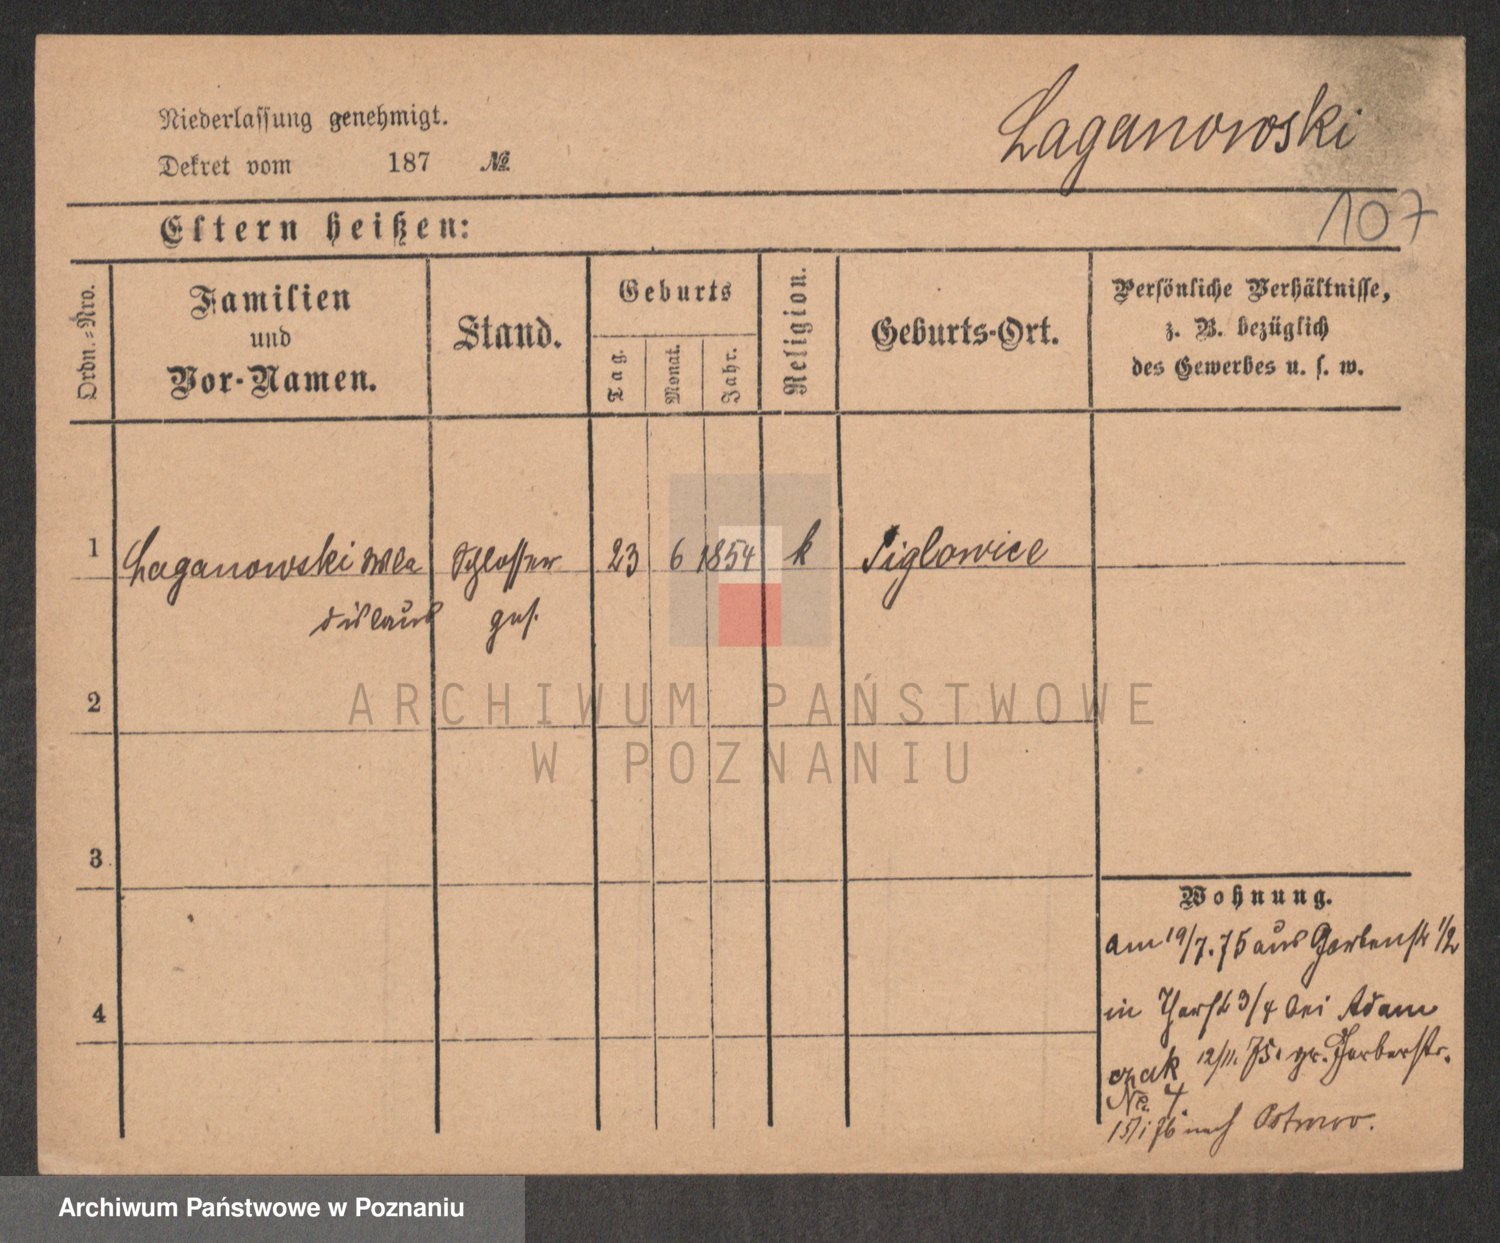 Niederlassung genehmigt.
Dekret vom 187 №
Łaganowski
107
Eltern heißen:
Ordn.-Nro.
Familien
und
Vor-Namen.
Stand.
Geburts
Tag.
Monat.
Jahr.
Religion.
Geburts-Ort.
Persönliche Verhältnisse,
z. B. bezüglich
des Gewerbes u. s. w.
1 Łaganowski Wla Schlosser 23 6 1854 k Siglowice
dislaus ges.
2
3
4
Wohnung.
am 19/7.75 aus Gartenstr 1/2
in 3/4 bei Adam
czak 12/11. 75. gr. Gerberstr.
No. 7.
15/1 76 nach Ostrowo.
ARCHIWUM PAŃSTWOWE
W POZNANIU
Archiwum Państwowe w Poznaniu